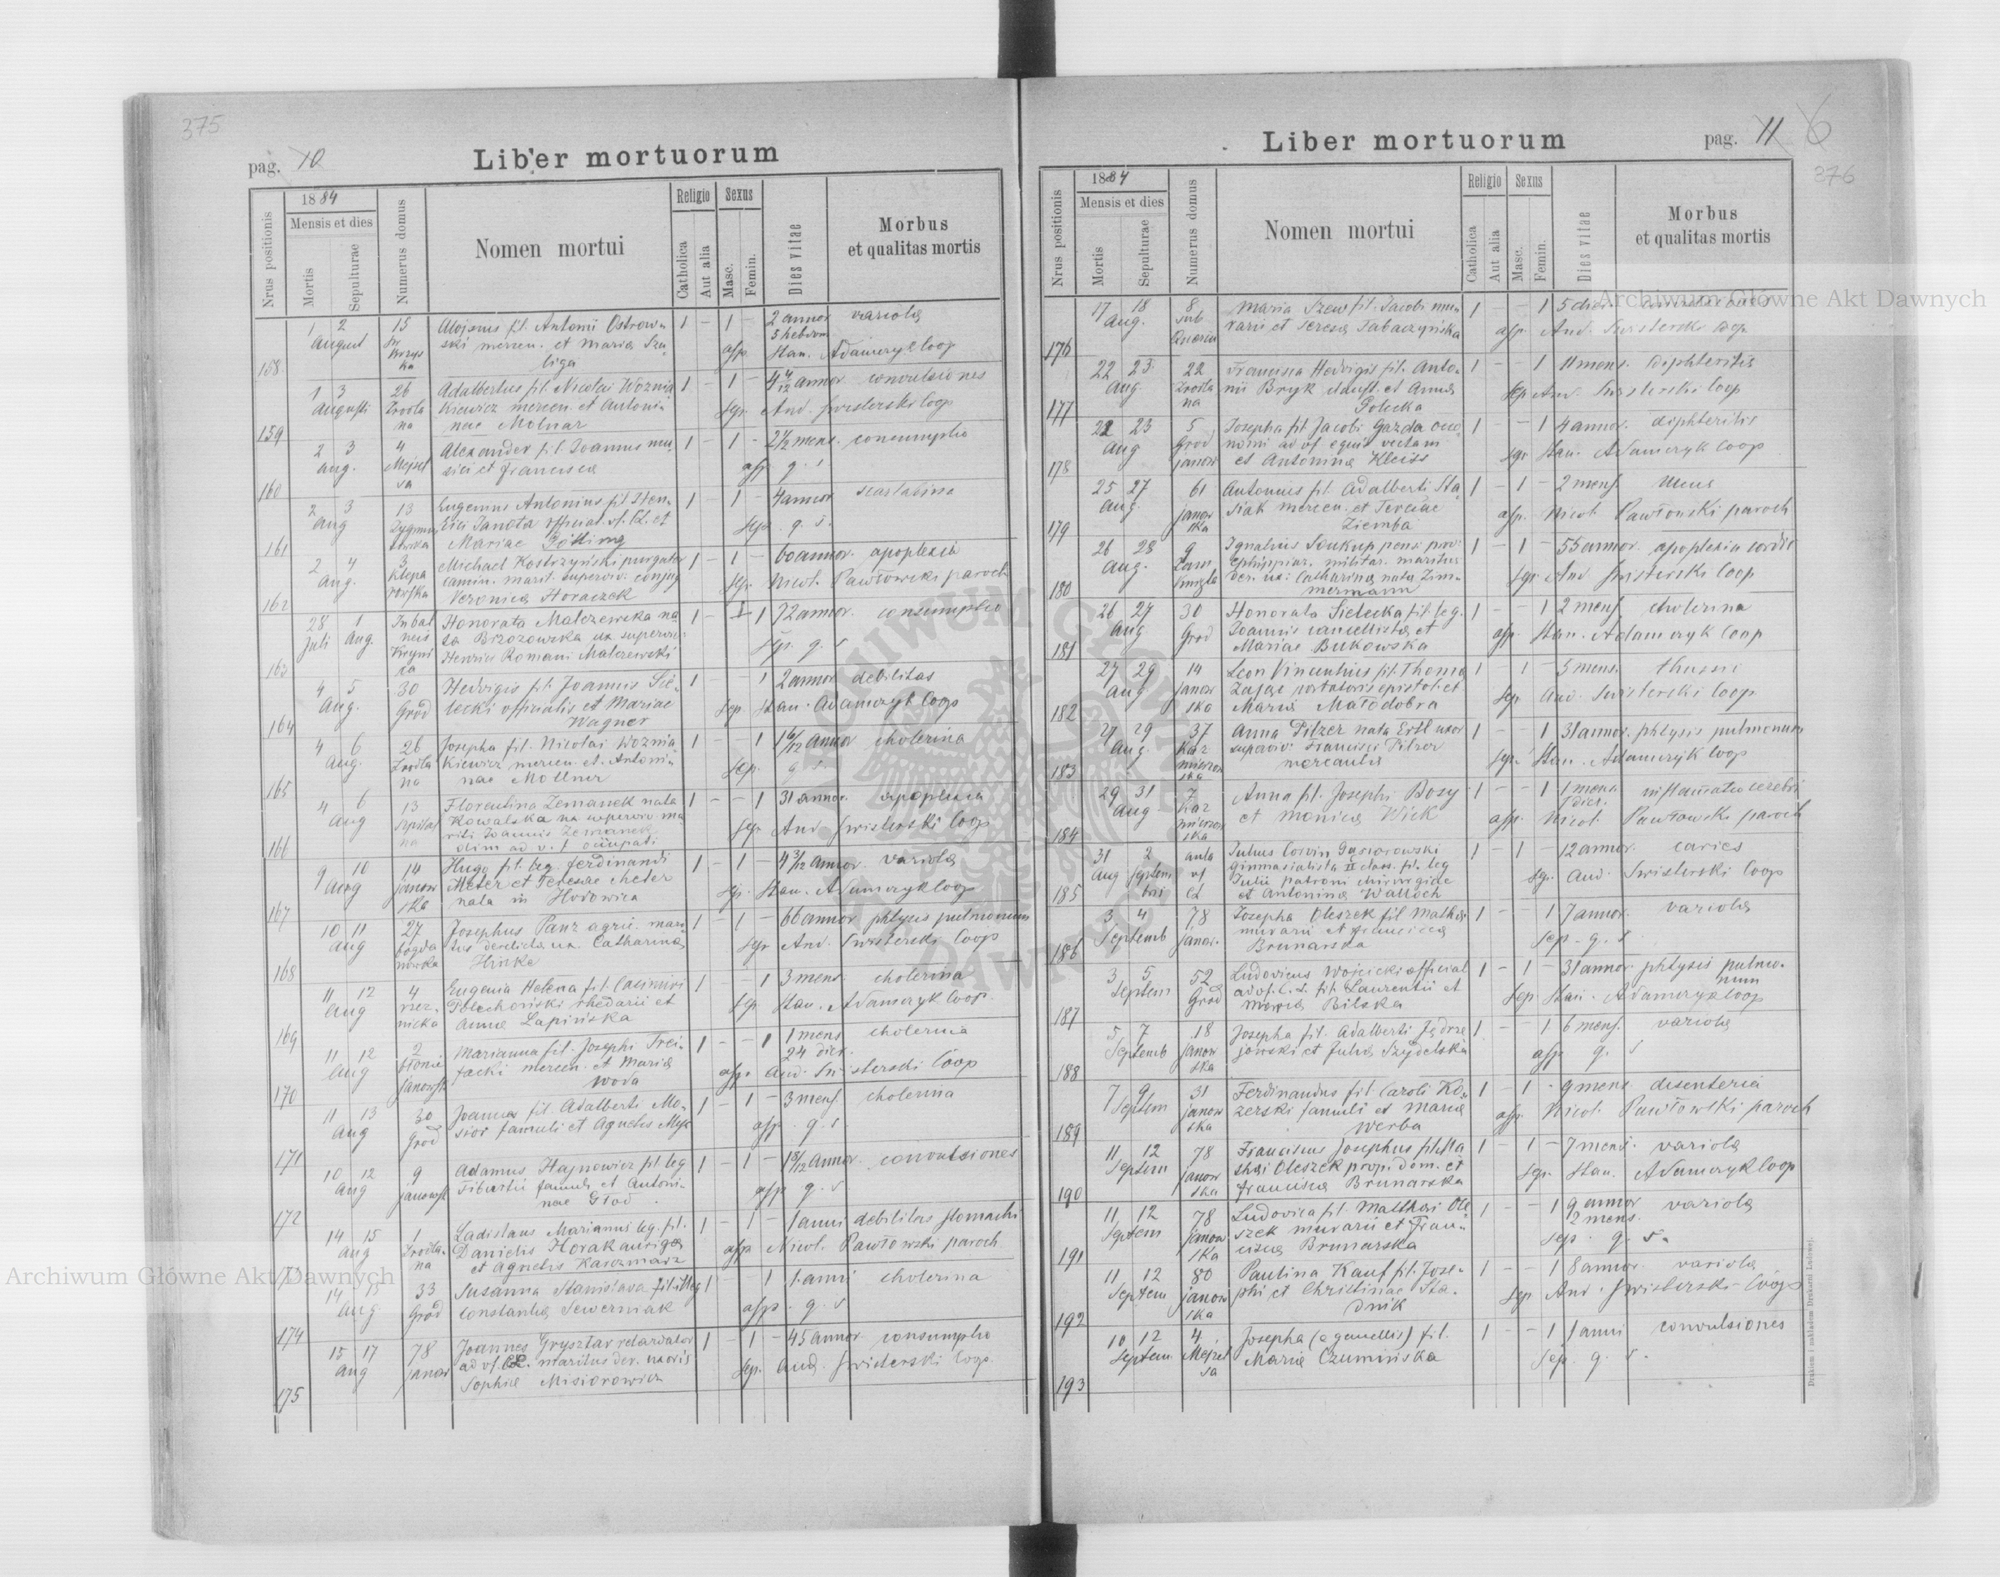 375
pag. 10
Liber mortuorum
Nrus positionis
1884
Mensis et dies
Mortis
Sepulturae
Numerus domus
Nomen mortui
Religio
Catholica
Aut alia
Sexus
Masc.
Femin.
Dies vitae
Morbus
et qualitas mortis
158
1 2
August
13
Aloisius fil. Antonii Ostrow-
ski mercen. et Maria Sza-
liga
1 – 1 –
2 annor
3 hebdom
variola
Stan. Adamczyk Coop
159
1 3
Augusti
26
Zrodla
na
Adalbertus fil. Nicolai Woznia
kiewicz mercen. et Antoni-
nae Molnar
1 – 1 –
4 4/12 annor convulsiones
sep. And. Swisterski Coop
160
2 3
Aug.
4
Alexander fil. Joannis mu-
sici et Francisca
1 – 1 –
2 1/2 mens. consumptio
g. s
161
2 3
Aug
13
Eugenius Antonius fil. Hen-
rici Janota official. of. et
Mariae
1 – 1 –
4 annor scarlatina
sep. g. s.
162
2 4
Aug.
3
Klepa
rowska
Michael Kostrzyński purgator
camin. marit. superviv. conjug
Veronica Horaczek
1 – 1 –
60 annor. apoplexia
sep. Nicol. Pawłowski paroch
163
28 1
Juli Aug.
Honorata Malczewska na
ta Brzozowska ux. superviv.
Henrici Romani Malczewski
1 – 1
72 annor. consumptio
sep. g. s
164
4 5
Aug.
30
Grod
Hedvigis fil. Joannis Sie-
lecki officialis et Mariae
Wagner
1 – – 1
2 annor debilitas
sep. Stan. Adamczyk Coop
165
4 6
Aug.
26
Zrodla
na
Josepha fil. Nicolai Woznia-
kiewicz mercen. et Antoni-
nae Mollner
1 – – 1
1 6/12 annor cholerina
sep. g s.
166
4 6
Aug
13
Szpital
na
Florentina Zemanek nata
Kowalska ux superviv ma
riti Joannis Zemanek
1 – – 1
31 annor. apoplexia
sep. And Swisterski Coop
167
9 10
Aug
14
Janow
ska
Hugo fil. leg Ferdinandi
Meter et Teresae Meter
nata in Horowica
1 – 1 –
4 3/12 annor. variola
sep. Stan. Adamczyk Coop
168
10 11
Aug
27
Bogda
nowka
Josephus Panz agric. mari
tus derelicta ux. Catharina
Hinke
1 – 1 –
66 annor phtysis pulmonum
sep. And. Swisterski Coop
169
11 12
Aug
4
rzez-
nicka
Eugenia Helena fil. Casimiri
Polechoński rhedarii et
Anna Lapińska
1 – – 1
3 mens. cholerina
sep. Stan. Adamczyk Coop.
170
11 12
Aug
2
błonie
Janowsk
Marianna fil. Josephi Trei-
facki mercen. et Maria
Woda
1 – – 1
1 mens
24 dier.
cholerina
And. Swisterski Coop
171
11 13
Aug
30
Grod
Joannes fil. Adalberti Mo-
sior famuli et Agnetis
1 – 1 –
3 mens. cholerina
g. s
172
10 12
Aug
9
Janowsk
Adamus Hajnowicz fil. leg
Tiburtii famuli et Antoni-
nae Głod
1 – 1 –
1 8/12 annor. convulsiones
g. s
173
14 15
Aug
1
Zrodla-
na
Ladislaus Marianus leg. fil.
Danielis Horak auriga
et Agnetis Kaszmarz
1 – 1 –
1 anni debilitas stomachi
Nicol. Pawłowski paroch
174
14 15
Aug.
33
Grod
Susanna Stanislava fil. illeg
Constantia Sewerniak
1 – 1
1 anni cholerina
g. s
175
15 17
Aug
78
Janow
Joannes Grysztar relarator
ad of. CL. maritus der. uxoris
Sophia Misiorowicz
1 – 1 –
45 annor consumptio
sep. And. Swisterski Coop.
pag. 11 6
376
Liber mortuorum
Nrus positionis
1884
Mensis et dies
Mortis
Sepulturae
Numerus domus
Nomen mortui
Religio
Catholica
Aut alia
Sexus
Masc.
Femin.
Dies vitae
Morbus
et qualitas mortis
176
17 18
Aug.
8
Maria Szew fil. Jacobi mu-
rarii et Teresa Tabaczyńska
1 – – 1
5 dier.
And. Swisterski Coop
177
22 23
Aug
22
Zrodla
na
Francisca Hedvigis fil. Anto-
nii Bryk et Anna
Potocka
1 – – 1
11 mens. diphteritis
sep And. Swisterski Coop
178
22 23
Aug
5
Grod
Janow
Josepha fil Jacobi Gazda
ad of. equis vectam
et Antonina Kleiss
1 – – 1
4 annor. diphteritis
sep. Stan. Adamczyk Coop
179
25 27
Aug.
61
Janow
ska
Antonius fil. Adalberti Sta-
siak mercen. et Teresae
Ziemba
1 – 1 –
2 mens.
Nicol. Pawłowski paroch
180
26 28
Aug.
9
Ignatius Soukup pens.
ephippiar. militar. maritus
der. ux. Catharina nata Zim-
mermann
1 – 1 –
55 annor. apoplexia cordis
sep. And Swisterski Coop
181
26 27
Aug
30
Grod
Honorata Sielecka fil. leg.
Joannis cancellista et
Mariae Bukowska
1 – – 1
2 mens. cholerina
Stan. Adamczyk Coop
182
27 29
Aug
14
Janow
ska
Leon Vincentius fil. Thoma
Zając portatoris epistol. et
Maria Małodobra
1 – 1 –
3 mens. thussis
sep. And. Swisterski Coop
183
27 29
Aug.
37
Kaz
mierzow
ska
Anna Pilzer nata Ertl uxor
superviv. Francisci Pilzer
mercantis
1 – – 1
31 annor. phtysis pulmonum
sep. Stan. Adamczyk Coop
184
29 31
Aug
7
Kaz
mierzow
ska
Anna fil. Josephi Bosy
et Monica Wiek
1 – – 1
1 mens
inflammatio cerebri
Nicol. Pawłowski paroch
185
31 2
Aug Septem
bri
Julius Corvin Gąsiorowski
gimnasialista II class. fil. leg
Julii patroni chirurgiae
et Antonina Walloch
1 – 1 –
12 annor. caries
sep. And. Swisterski Coop
186
3 4
Septemb
78
Janow.
Josepha Oleszek fil Mathaei
murarii et Francisca
Brunarska
1 – – 1
7 annor. variola
sep. g. s
187
3 5
Septem
52
Grod
Ludovicus Wojcicki official
ad of. C. L. fil. Laurentii et
Maria Bilska
1 – 1 –
31 annor phtysis pulmo-
num
sep Stan. Adamczyk Coop
188
5 7
Septemb
18
Janow
ska
Josepha fil. Adalberti Jędrze
jowski et Julia Szydelska
1 – – 1
6 mens. variola
g. s
189
7 9
Septem
31
Janow
ska
Ferdinandus fil Caroli Ko-
zerski famuli et Maria
Werba
1 – 1 –
9 mens. disenteria
Nicol. Pawłowski paroch
190
11 12
Septem
78
Janow
ska
Franciscus Josephus fil. Ma
thaei Oleszek propr. dom. et
Francisca Brunarska
1 – 1 –
7 mens. variola
sep. Stan. Adamczyk Coop
191
11 12
Septem
78
Janow
ska
Ludovica fil. Matthaei Ole
szek murarii et Fran-
cisca Brunarska
1 – – 1
9 annor
2 mens.
variola
sep. g. s.
192
11 12
Septem
80
Janow
ska
Paulina Kauf fil. Jose-
phi et Christinae Sta-
dnik
1 – – 1
8 annor. variola
sep And. Swisterski Coop
193
10 12
Septem.
4
Mejzel
sa
Josepha (e gemellis) fil.
Maria Czuminska
1 – – 1
1 anni convulsiones
sep. g. s.
Archiwum Główne Akt Dawnych
Archiwum Główne Akt Dawnych